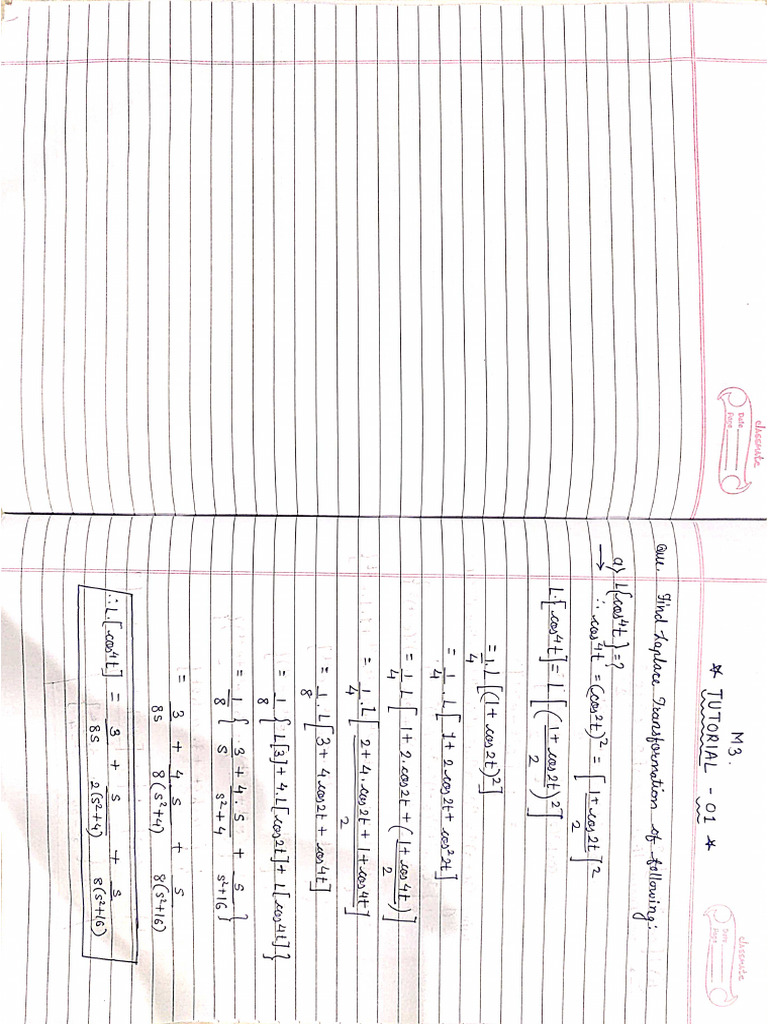 classmate
Date
Page
classmate
Date
Page
M3.
* TUTORIAL - 01 *
Que. Find Laplace Transformation of following:
a) L{cos⁴t} = ?
→ ∴ cos⁴t = (cos²t)² = [(1 + cos2t)/2]²
L.[cos⁴t] = L[((1 + cos2t)/2)²]
= 1/4.L[(1 + cos2t)²]
= 1/4.L[1 + 2.cos2t + cos²2t]
= 1/4 L[1 + 2.cos2t + ((1 + cos4t)/2)]
= 1/4.L[(2 + 4.cos2t + 1 + cos4t)/2]
= 1/8.L[3 + 4.cos2t + cos4t]
= 1/8{L[3] + 4.L[cos2t] + L[cos4t]}
= 1/8{3/s + 4.s/(s²+4) + s/(s²+16)}
= 3/8s + 4.s/8(s²+4) + s/8(s²+16)
∴ L.[cos⁴t] = 3/8s + s/2(s²+4) + s/8(s²+16)